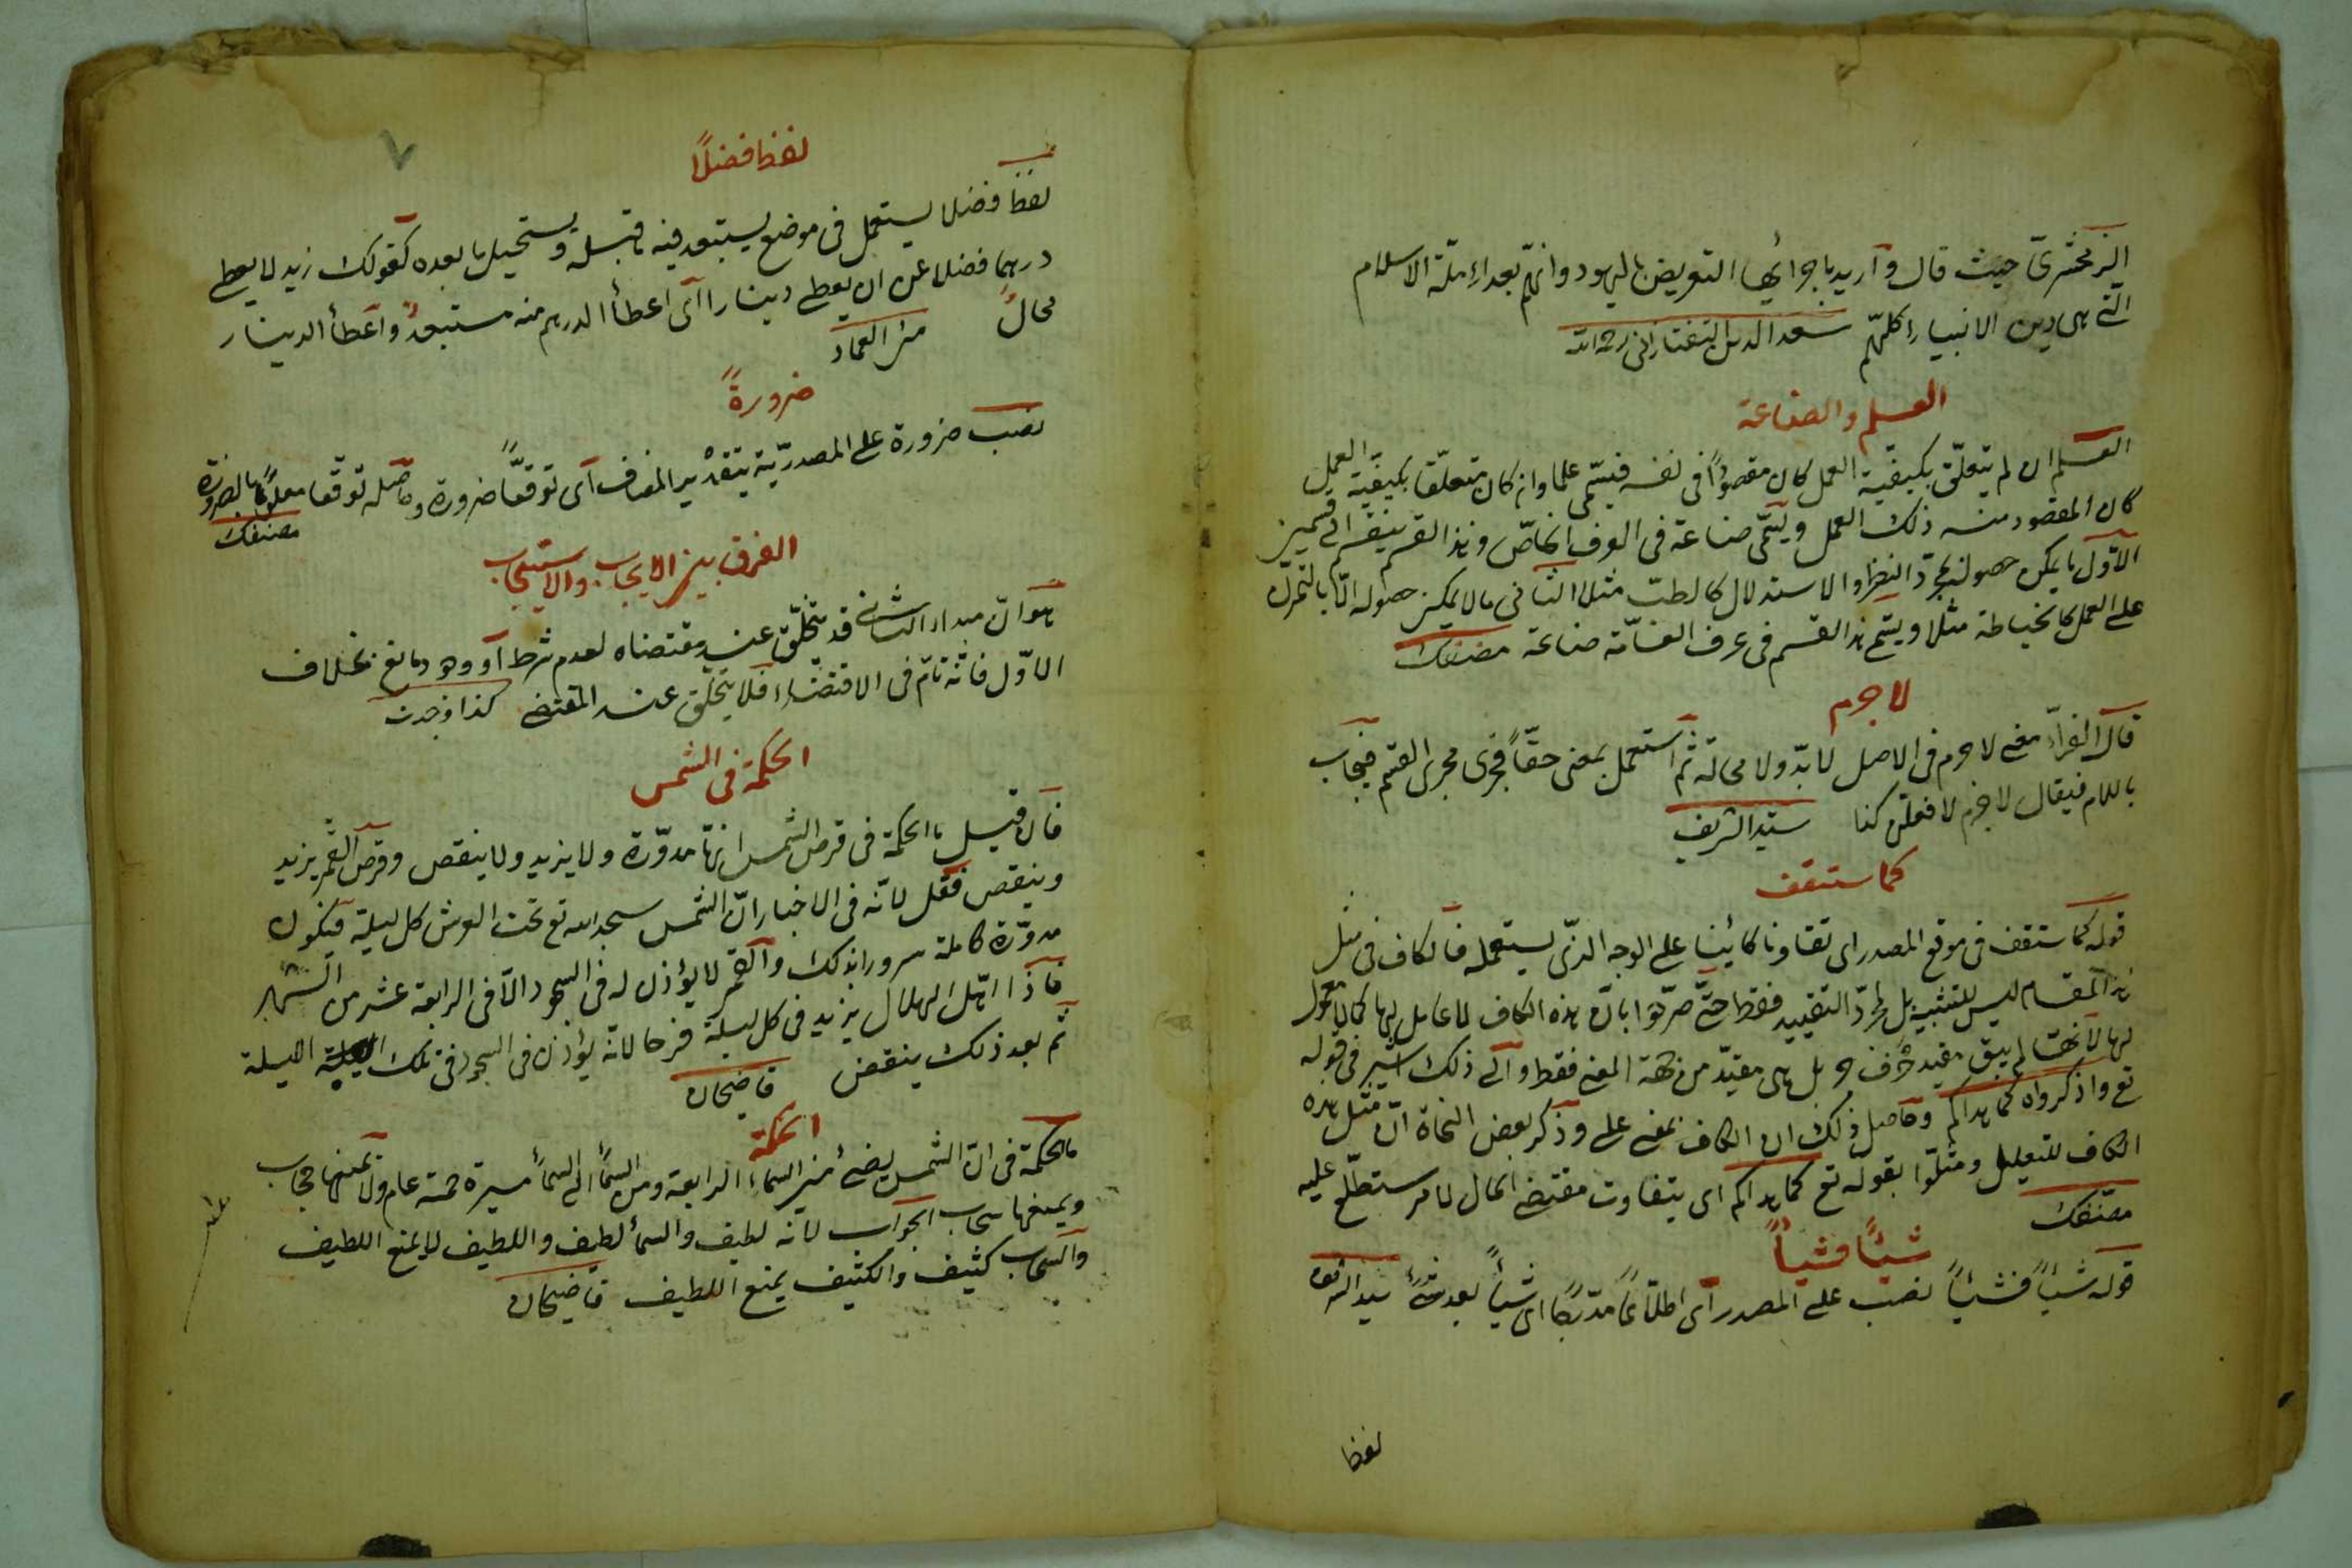 الزمخشريّ حيث قال وأريد باجرائها التعريض باليهود وانهم بعداء ملة الاسلام
التي هي دين الانبياء كلهم سعد الدين التفتازاني رحه الله
العلم والصناعة
العلم ان لم يتعلّق بكيفية العمل كان مقصودًا في نفسه فيسمّى علما وان كان متعلّقا بكيفية العمل
كان المقصود منه ذلك العمل ويسمّى صناعة في العرف الخاصّ وهذا القسم ينقسم الى قسمين
الاوّل ما يمكن حصوله بمجرد النظر والاستدلال كالطبّ مثلا الثاني ما لا يمكن حصوله الّا بالتمرّن
على العمل كالخياطة مثلا ويسمّى هذا القسم في عرف العامّة صناعة مصنفك
لا جرم
قال الفرّاء معنى لا جرم في الاصل لا بدّ ولا محالة ثمّ استعمل بمعنى حقّاً فجرى مجرى القسم فيجاب
باللام فيقال لا جرم لافعلن كذا سيد الشريف
كما ستقف
قوله كما ستقف في موقع المصدر اى تفاوتا كائنا على الوجه الذى يستعمله فالكاف في مثل
هذا المقام ليس للتشبيه بل لمجرّد التقييد فقط حتّى صرّحوا بانّ هذه الكاف لا عامل لها كما لا معمول
لها لانها لم يبق مقيد حرف جر بل هى مقيّد من جهة المعنى فقط والى ذلك اشير في قوله
تع واذكروه كما هداكم وحاصل ذلك ان الكاف بمعنى على وذكر بعض النحاة انّ مثل هذه
الكاف للتعليل ومثّلوا بقوله تع كما هداكم اى يتفاوت مقتضى الحال لما مر ستطّلع عليه
مصنفك
شيئًا فشيئاً
قوله شيئاً فشيئاً نصب على المصدر اى اطلاعًا مدرّجًا اى شيئاً بعد شئ سيد الشريف
لفظ
٧
لفظ فضلاً
لفظ فضلا يستعمل في موضع يستبعد فيه ما قبله ويستحيل ما بعده كقولك زيد لا يعطى
درهما فضلا عن ان يعطى دينارا اى اعطأ الدرهم منه مستبعدٌ واعطأ الدينار
محالٌ من العماد
ضرورةً
نصب ضرورة على المصدريّة بتقدير المضاف اى توقفًا ضرورة وحاصله توقفا معلومًا بالضرورة
مصنفك
الفرق بين الايجاب والاستيجاب
هو انّ مبداء الثانى قد يتخلّف عنه مقتضاه لعدم شرط او وجود مانع بخلاف
الاوّل فانّه تامّ في الاقتضاء فلا يتخلّف عنه المقتضى كذا وجدت
الحكمة في الشمس
فان قيل ما الحكمة في قرص الشمس انها مدوّرة ولا يزيد ولا ينقص وقرص القمر يزيد
وينقص فقل لانّه في الاخبار انّ الشمس سجد لله تع تحت العرش كل ليلة فيكون
مدوّرة كاملة سرورا بذلك والقمر لا يؤذن له في السجود الّا في الرابعة عشر من الشهر
فاذا اهّل الهلال يزيد في كل ليلة فرحا لانّه يؤذن في السجود في تلك الليلة
ثم بعد ذلك ينقص قاضيخان
الحكمة
ما الحكمة في انّ الشمس يضئ من السماء الرابعة ومن السمأ الى السمأ مسيرة خمسة عام ولا يمنعها حجاب
ويمنعها سحاب الجواب لانه لطيف والسمأ لطيف واللطيف لا يمنع اللطيف
والسحاب كثيف والكثيف يمنع اللطيف قاضيخان